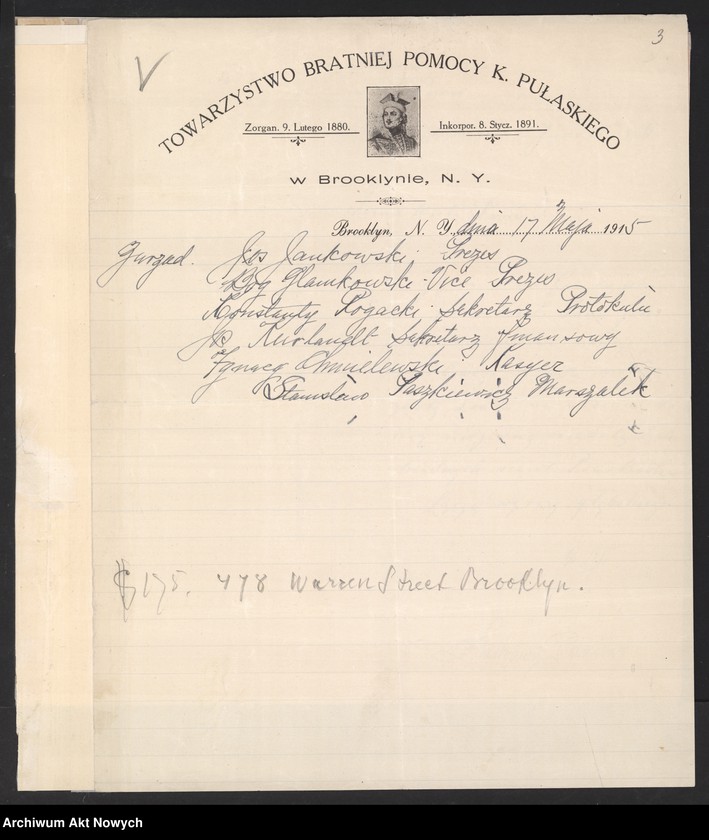 3
TOWARZYSTWO BRATNIEJ POMOCY K. PUŁASKIEGO
Zorgan. 9. Lutego 1880.
Inkorpor. 8. Stycz. 1891.
w Brooklynie, N. Y.
Brooklyn, N. Y. dnia 17 Maja 1915
Zurząd. Jos Jankowski Prezes
Bog Glamkowski Vice Prezes
Konstanty Rogacki Sekretarz Protokułu
Kurlandt Sekretarz Finansowy
Ignacy Chmielewski Kasyer
Stanisław Paszkiewicz Marszałek
$175. 478 Warren Street Brooklyn.
Archiwum Akt Nowych